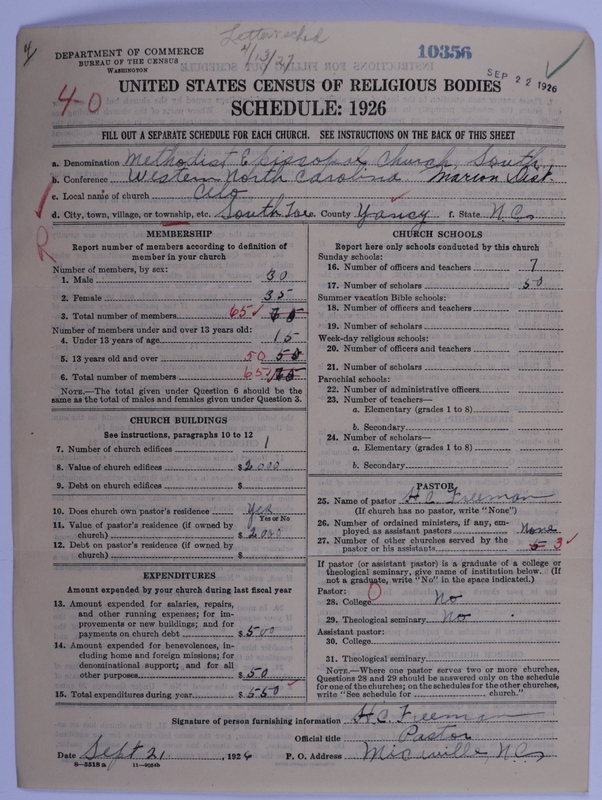 4/13/27
10356
DEPARTMENT OF COMMERCE
BUREAU OF THE CENSUS
WASHINGTON
SEP 22 1926
4-0
UNITED STATES CENSUS OF RELIGIOUS BODIES
SCHEDULE: 1926
FILL OUT A SEPARATE SCHEDULE FOR EACH CHURCH. SEE INSTRUCTIONS ON THE BACK OF THIS SHEET
a. Denomination Methodist Episcopal Church, South
b. Conference Western North Carolina Marion Dist.
c. Local name of church Celo
d. City, town, village, or township, etc. South Toe e. County Yancy f. State N.C.
R
MEMBERSHIP
Report number of members according to definition of member in your church
Number of members, by sex:
1. Male 30
2. Female 35
3. Total number of members 65
Number of members under and over 13 years old:
4. Under 13 years of age 15
5. 13 years old and over 50
6. Total number of members 65
NOTE.—The total given under Question 6 should be the
same as the total of males and females given under Question 3.
CHURCH BUILDINGS
See instructions, paragraphs 10 to 12
7. Number of church edifices 1
8. Value of church edifices $ 2000
9. Debt on church edifices $
10. Does church own pastor's residence Yes
Yes or No
11. Value of pastor's residence (if owned by
church) $ 2000
12. Debt on pastor's residence (if owned by
church) $
EXPENDITURES
Amount expended by your church during last fiscal year
13. Amount expended for salaries, repairs,
and other running expenses; for im-
provements or new buildings; and for
payments on church debt $ 500
14. Amount expended for benevolences, in-
cluding home and foreign missions; for
denominational support; and for all
other purposes $ 50
15. Total expenditures during year $ 550
CHURCH SCHOOLS
Report here only schools conducted by this church
Sunday schools:
16. Number of officers and teachers 7
17. Number of scholars 50
Summer vacation Bible schools:
18. Number of officers and teachers
19. Number of scholars
Week-day religious schools:
20. Number of officers and teachers
21. Number of scholars
Parochial schools:
22. Number of administrative officers
23. Number of teachers—
a. Elementary (grades 1 to 8)
b. Secondary
24. Number of scholars—
a. Elementary (grades 1 to 8)
b. Secondary
PASTOR
25. Name of pastor H.C. Freeman
(If church has no pastor, write "None")
26. Number of ordained ministers, if any, em-
ployed as assistant pastors None
27. Number of other churches served by the
pastor or his assistants 5 3
If pastor (or assistant pastor) is a graduate of a college or
theological seminary, give name of institution below. (If
not a graduate, write "No" in the space indicated.)
Pastor:
28. College No
29. Theological seminary No
Assistant pastor:
30. College
31. Theological seminary
NOTE.—Where one pastor serves two or more churches,
Questions 28 and 29 should be answered only on the schedule
for one of the churches; on the schedules for the other churches,
write "See schedule for church."
Signature of person furnishing information H.C. Freeman
Official title Pastor
Date Sept 21, 1926 P. O. Address Micaville, N.C.
8—5518a 11—9054b